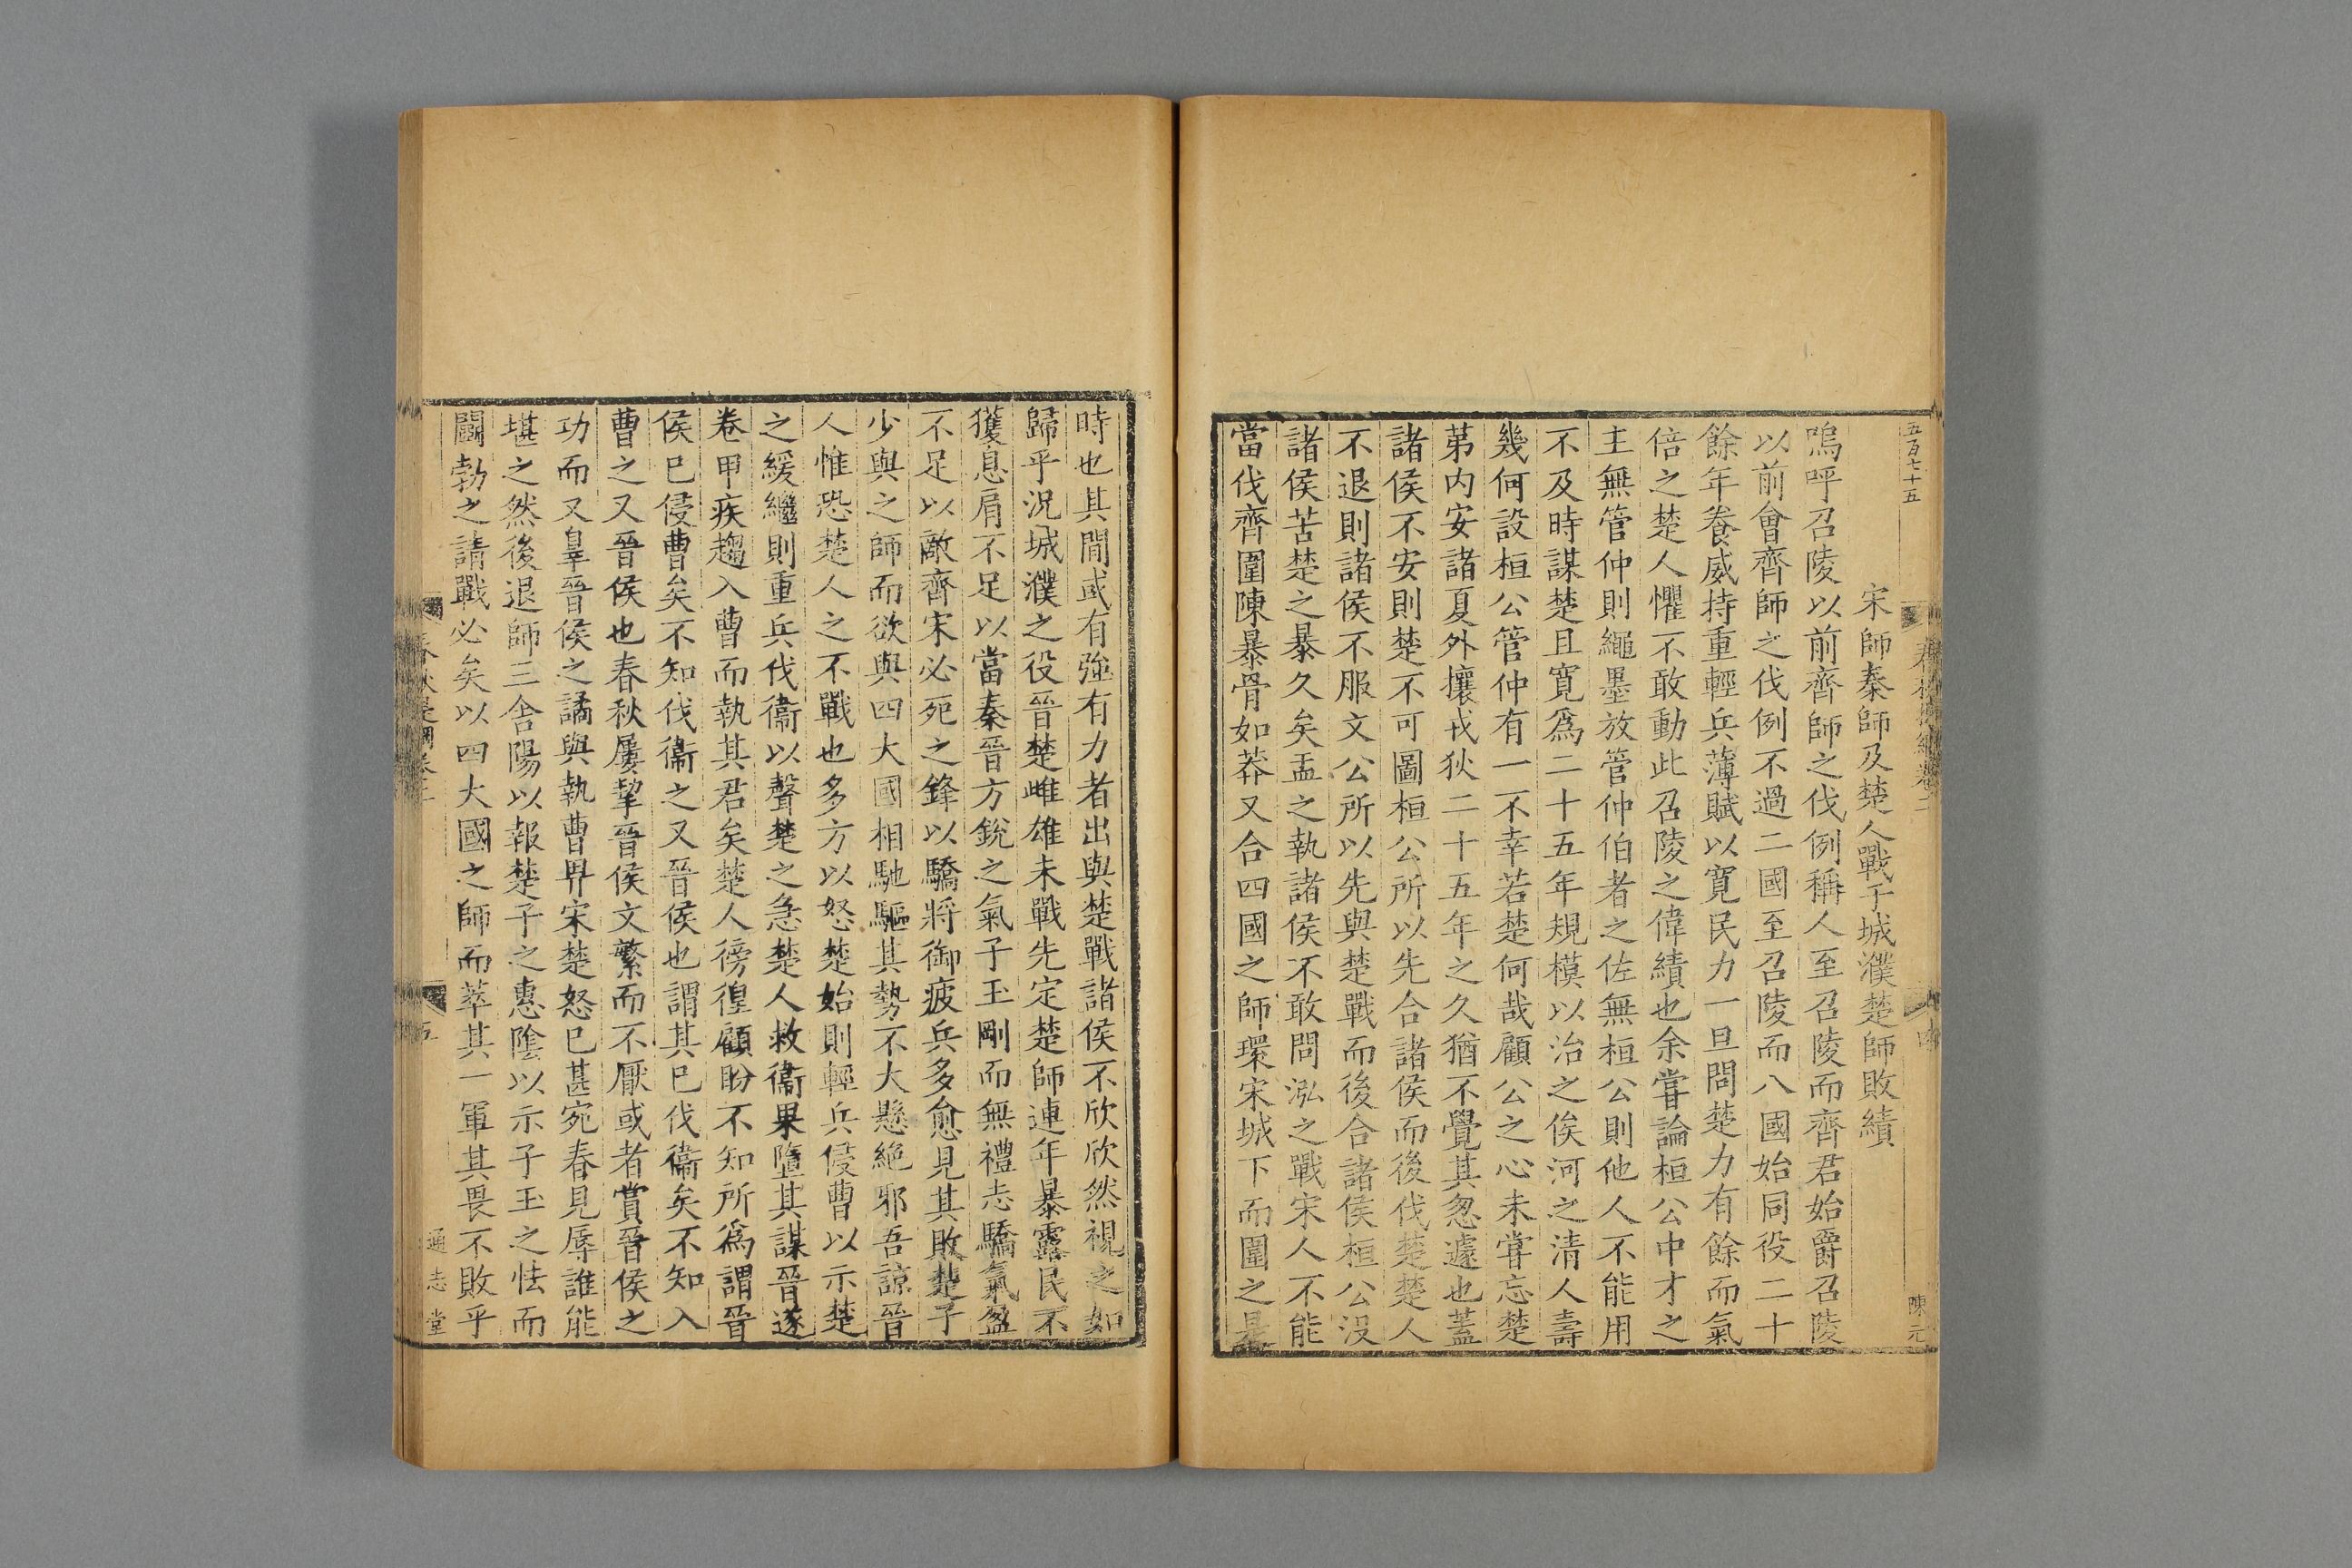 五百七十五
陳元
宋師秦師及楚人戰于城濮楚師敗績
嗚呼召陵以前齊師之伐例稱人至召陵而齊君始爵召陵
以前會齊師之伐例不過二國至召陵而八國始同役二十
餘年養威持重輕兵薄賦以寛民力一旦問楚力有餘而氣
倍之楚人懼不敢動此召陵之偉績也余甞論桓公中才之
主無管仲則繩墨放管仲伯者之佐無桓公則他人不能用
不及時謀楚且寛爲二十五年規模以治之俟河之清人壽
幾何設桓公管仲有一不幸若楚何哉顧公之心未甞忘楚
苐内安諸夏外攘戎狄二十五年之久猶不覺其怱遽也蓋
諸侯不安則楚不可圖桓公所以先合諸侯而後伐楚楚人
不退則諸侯不服文公所以先與楚戰而後合諸侯桓公没
諸侯苦楚之暴久矣盂之執諸侯不敢問泓之戰宋人不能
當伐齊圍陳暴骨如莽又合四國之師環宋城下而圍之是
時也其間或有強有力者出與楚戰諸侯不欣欣然視之如
歸乎況城濮之役晉楚雌雄未戰先定楚師連年暴露民不
獲息肩不足以當秦晉方銳之氣子玉剛而無禮志驕氣盈
不足以敵齊宋必死之鋒以驕將御疲兵多愈見其敗楚子
少與之師而欲與四大國相馳驅其勢不大懸絶邪吾諒晉
人惟恐楚人之不戰也多方以怒楚始則輕兵侵曹以示楚
之緩繼則重兵伐衞以聲楚之急楚人救衞果墮其謀晉遂
卷甲疾趨入曹而執其君矣楚人徬徨顧盼不知所爲謂晉
侯已侵曹矣不知伐衞之又晉侯也謂其已伐衞矣不知入
曹之又晉侯也春秋屢挈晉侯文繁而不厭或者賞晉侯之
功而又辠晉侯之譎與執曹畀宋楚怒已甚宛春見辱誰能
堪之然後退師三舍陽以報楚子之惠陰以示子玉之怯而
鬬勃之請戰必矣以四大國之師而萃其一軍其畏不敗乎
五
通志堂